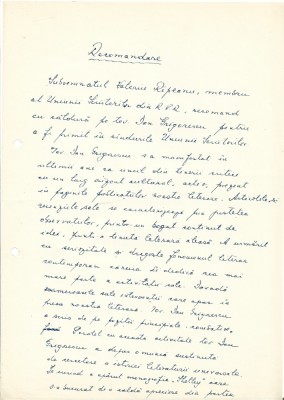 Recomandare
Subsemnatul Valeriu Râpeanu, membru
al Uniunii Scriitorilor din R.P.R., recomand
cu căldură pe tov. Ion Grigorescu pentru
a fi primit în rândurile Uniunii Scriitorilor
Tov. Ion Grigorescu s-a manifestat în
ultimii ani ca unul din tinerii critici
cu un larg orizont cultural, activ, prezent
în paginile publicațiilor noastre literare. Articolele și
cronicile sale se caracterizează prin puterea
observațiilor, printr-un bogat conținut de
idei, printr-o ținută literară aleasă. A urmărit
cu perseverență și dragoste fenomenul literar
contemporan căruia îi dedică cea mai
mare parte a activității sale. Dovadă
numeroasele sale intervenții care apar în
presa noastră literară. Tov. Ion Grigorescu
a scris de pe poziții principiale, combative.
Paralel cu această activitate tov. Ion
Grigorescu a depus o muncă susținută
de cercetare a istoriei literaturii universale.
Recent a apărut monografia „Shelley" care
s-a bucurat de o caldă apreciere din partea